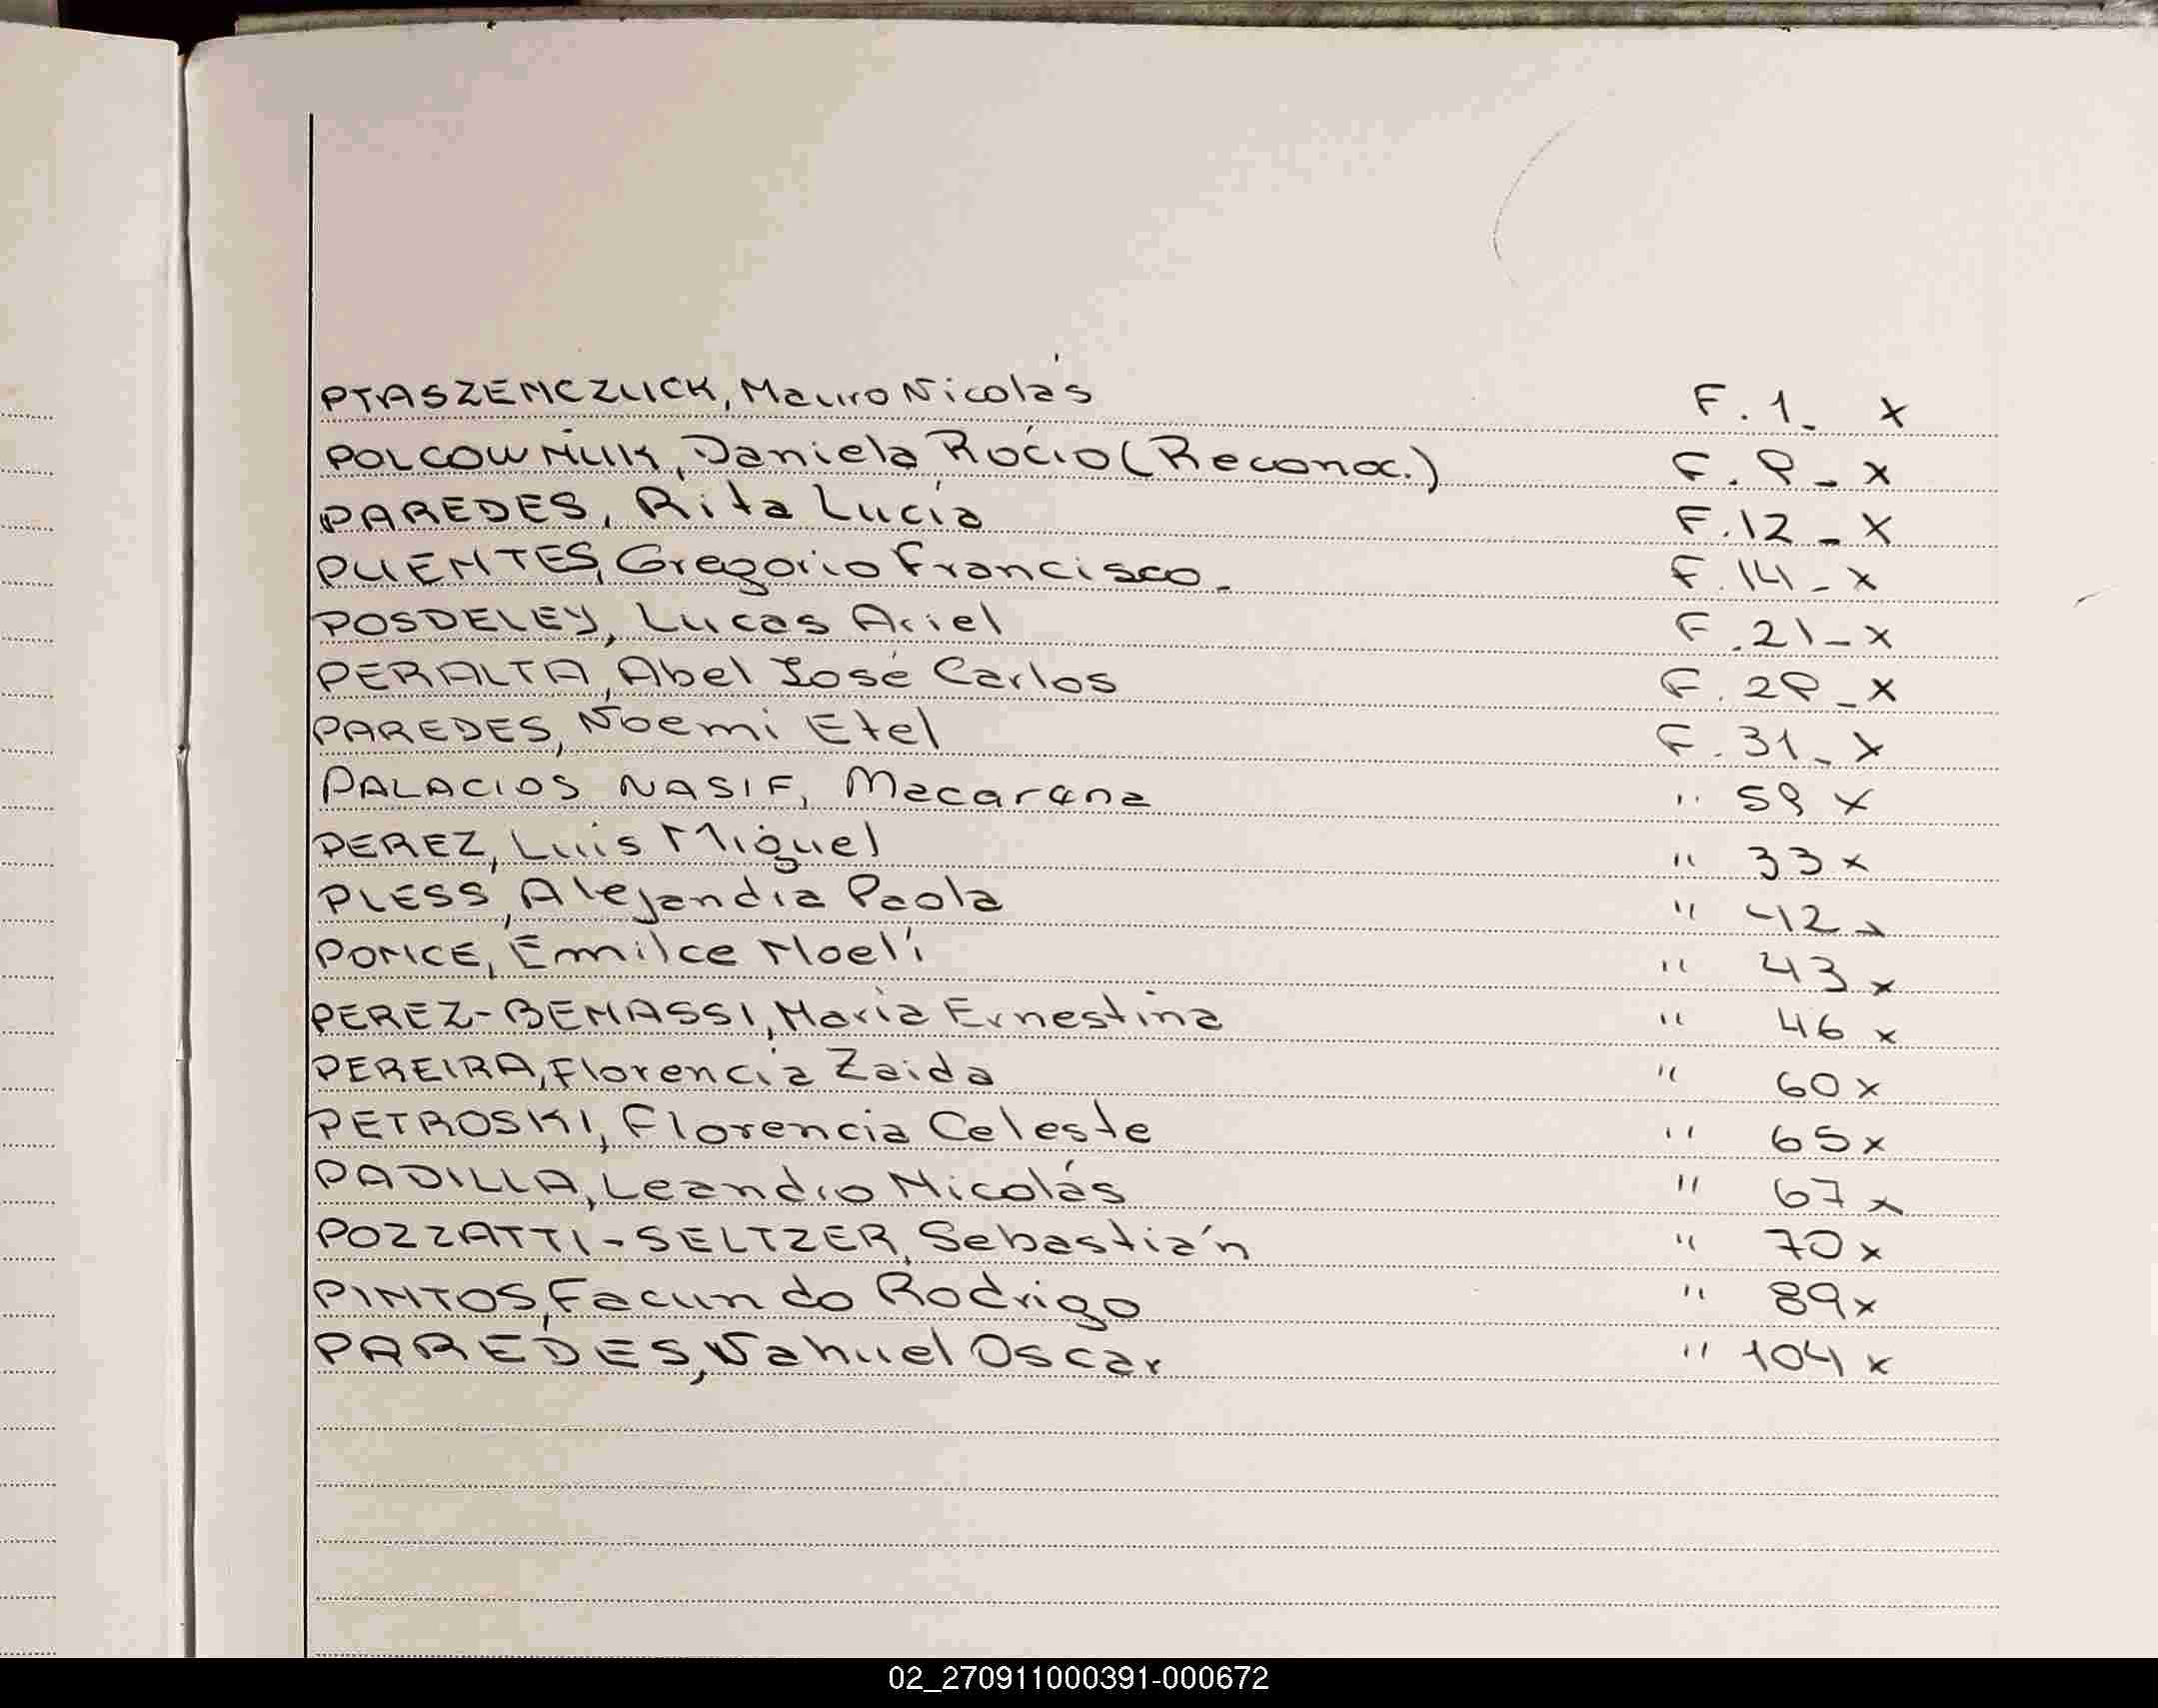 PTASZENCZUCK, Mauro Nicolás F. 1_ x
POLCOWÑUK, Daniela Rocío (Reconoc.) F. 8_ x
PAREDES, Rita Lucía F. 12_ x
PUENTES, Gregorio Francisco_ F. 14_ x
POSDELEY, Lucas Ariel F. 21_ x
PERALTA, Abel José Carlos F. 28_ x
PAREDES, Noemi Etel F. 31_ x
PALACIOS NASIF, Macarena " 59 x
PEREZ, Luis Miguel " 33 x
PLESS, Alejandra Paola " 42 x
PONCE, Emilce Noelí " 43 x
PEREZ-BENASSI, María Ernestina " 46 x
PEREIRA, Florencia Zaida " 60 x
PETROSKI, Florencia Celeste " 65 x
PADILLA, Leandro Nicolás " 67 x
POZZATTI-SELTZER, Sebastián " 70 x
PINTOS, Facundo Rodrigo " 89 x
PAREDES, Nahuel Oscar " 104 x
02_270911000391-000672